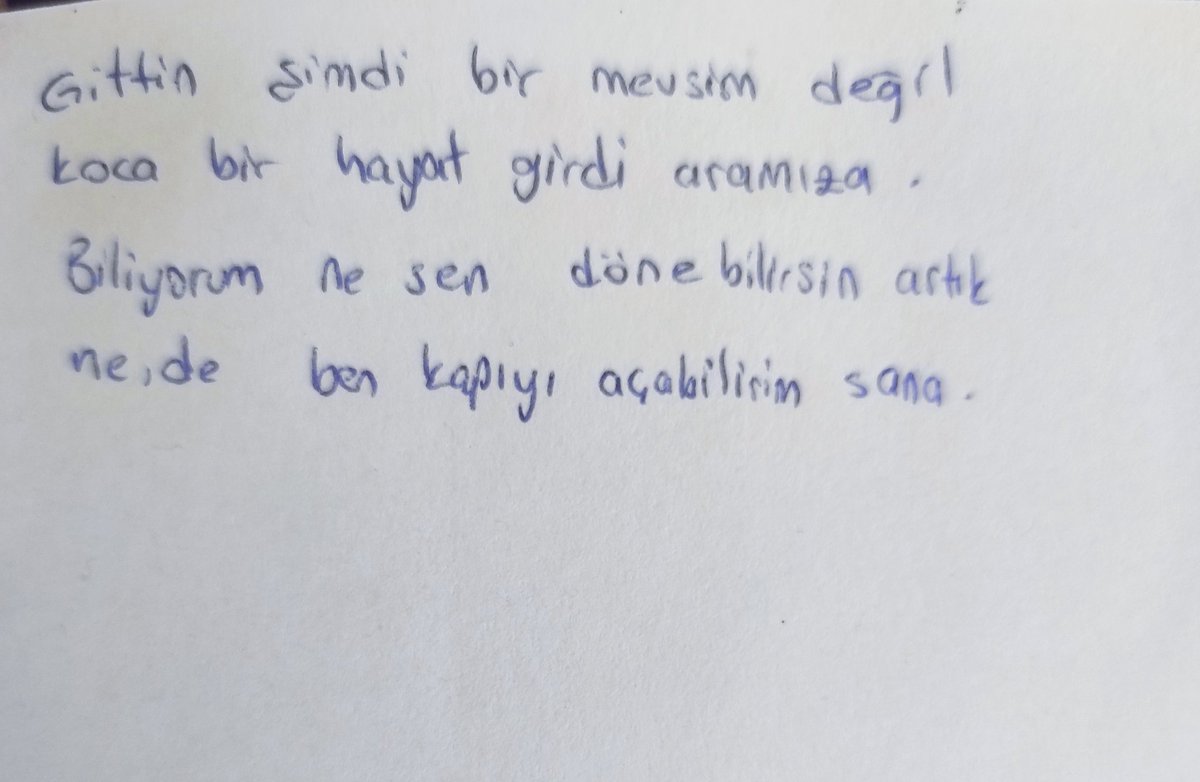 Gittin şimdi bir mevsim değil
koca bir hayat girdi aramıza.
Biliyorum ne sen döne bilirsin artık
ne, de ben kapıyı açabilirim sana.